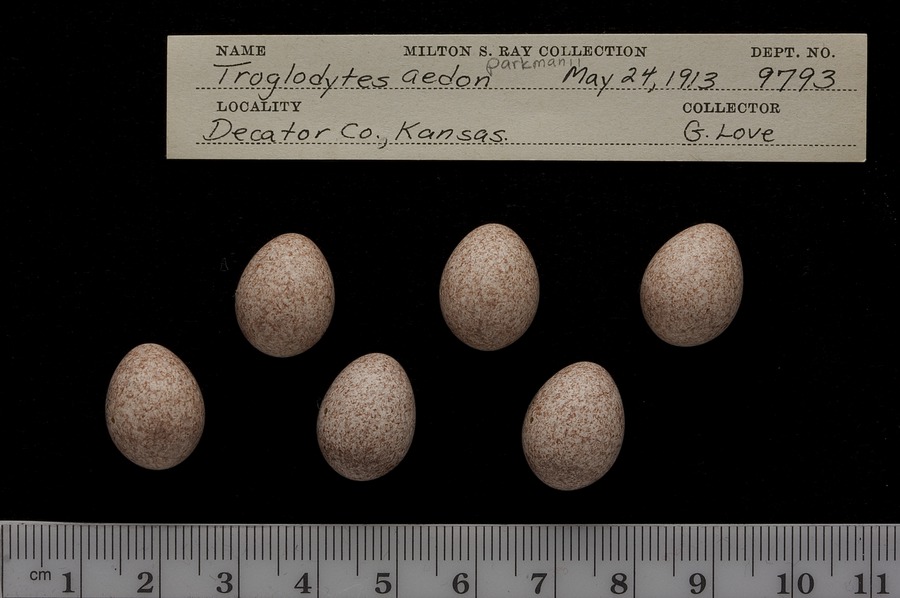 NAME MILTON S. RAY COLLECTION DEPT. NO.
parkmanii
Troglodytes aedon May 24, 1913 9793
LOCALITY COLLECTOR
Decator Co., Kansas. G. Love
cm 1 2 3 4 5 6 7 8 9 10 11